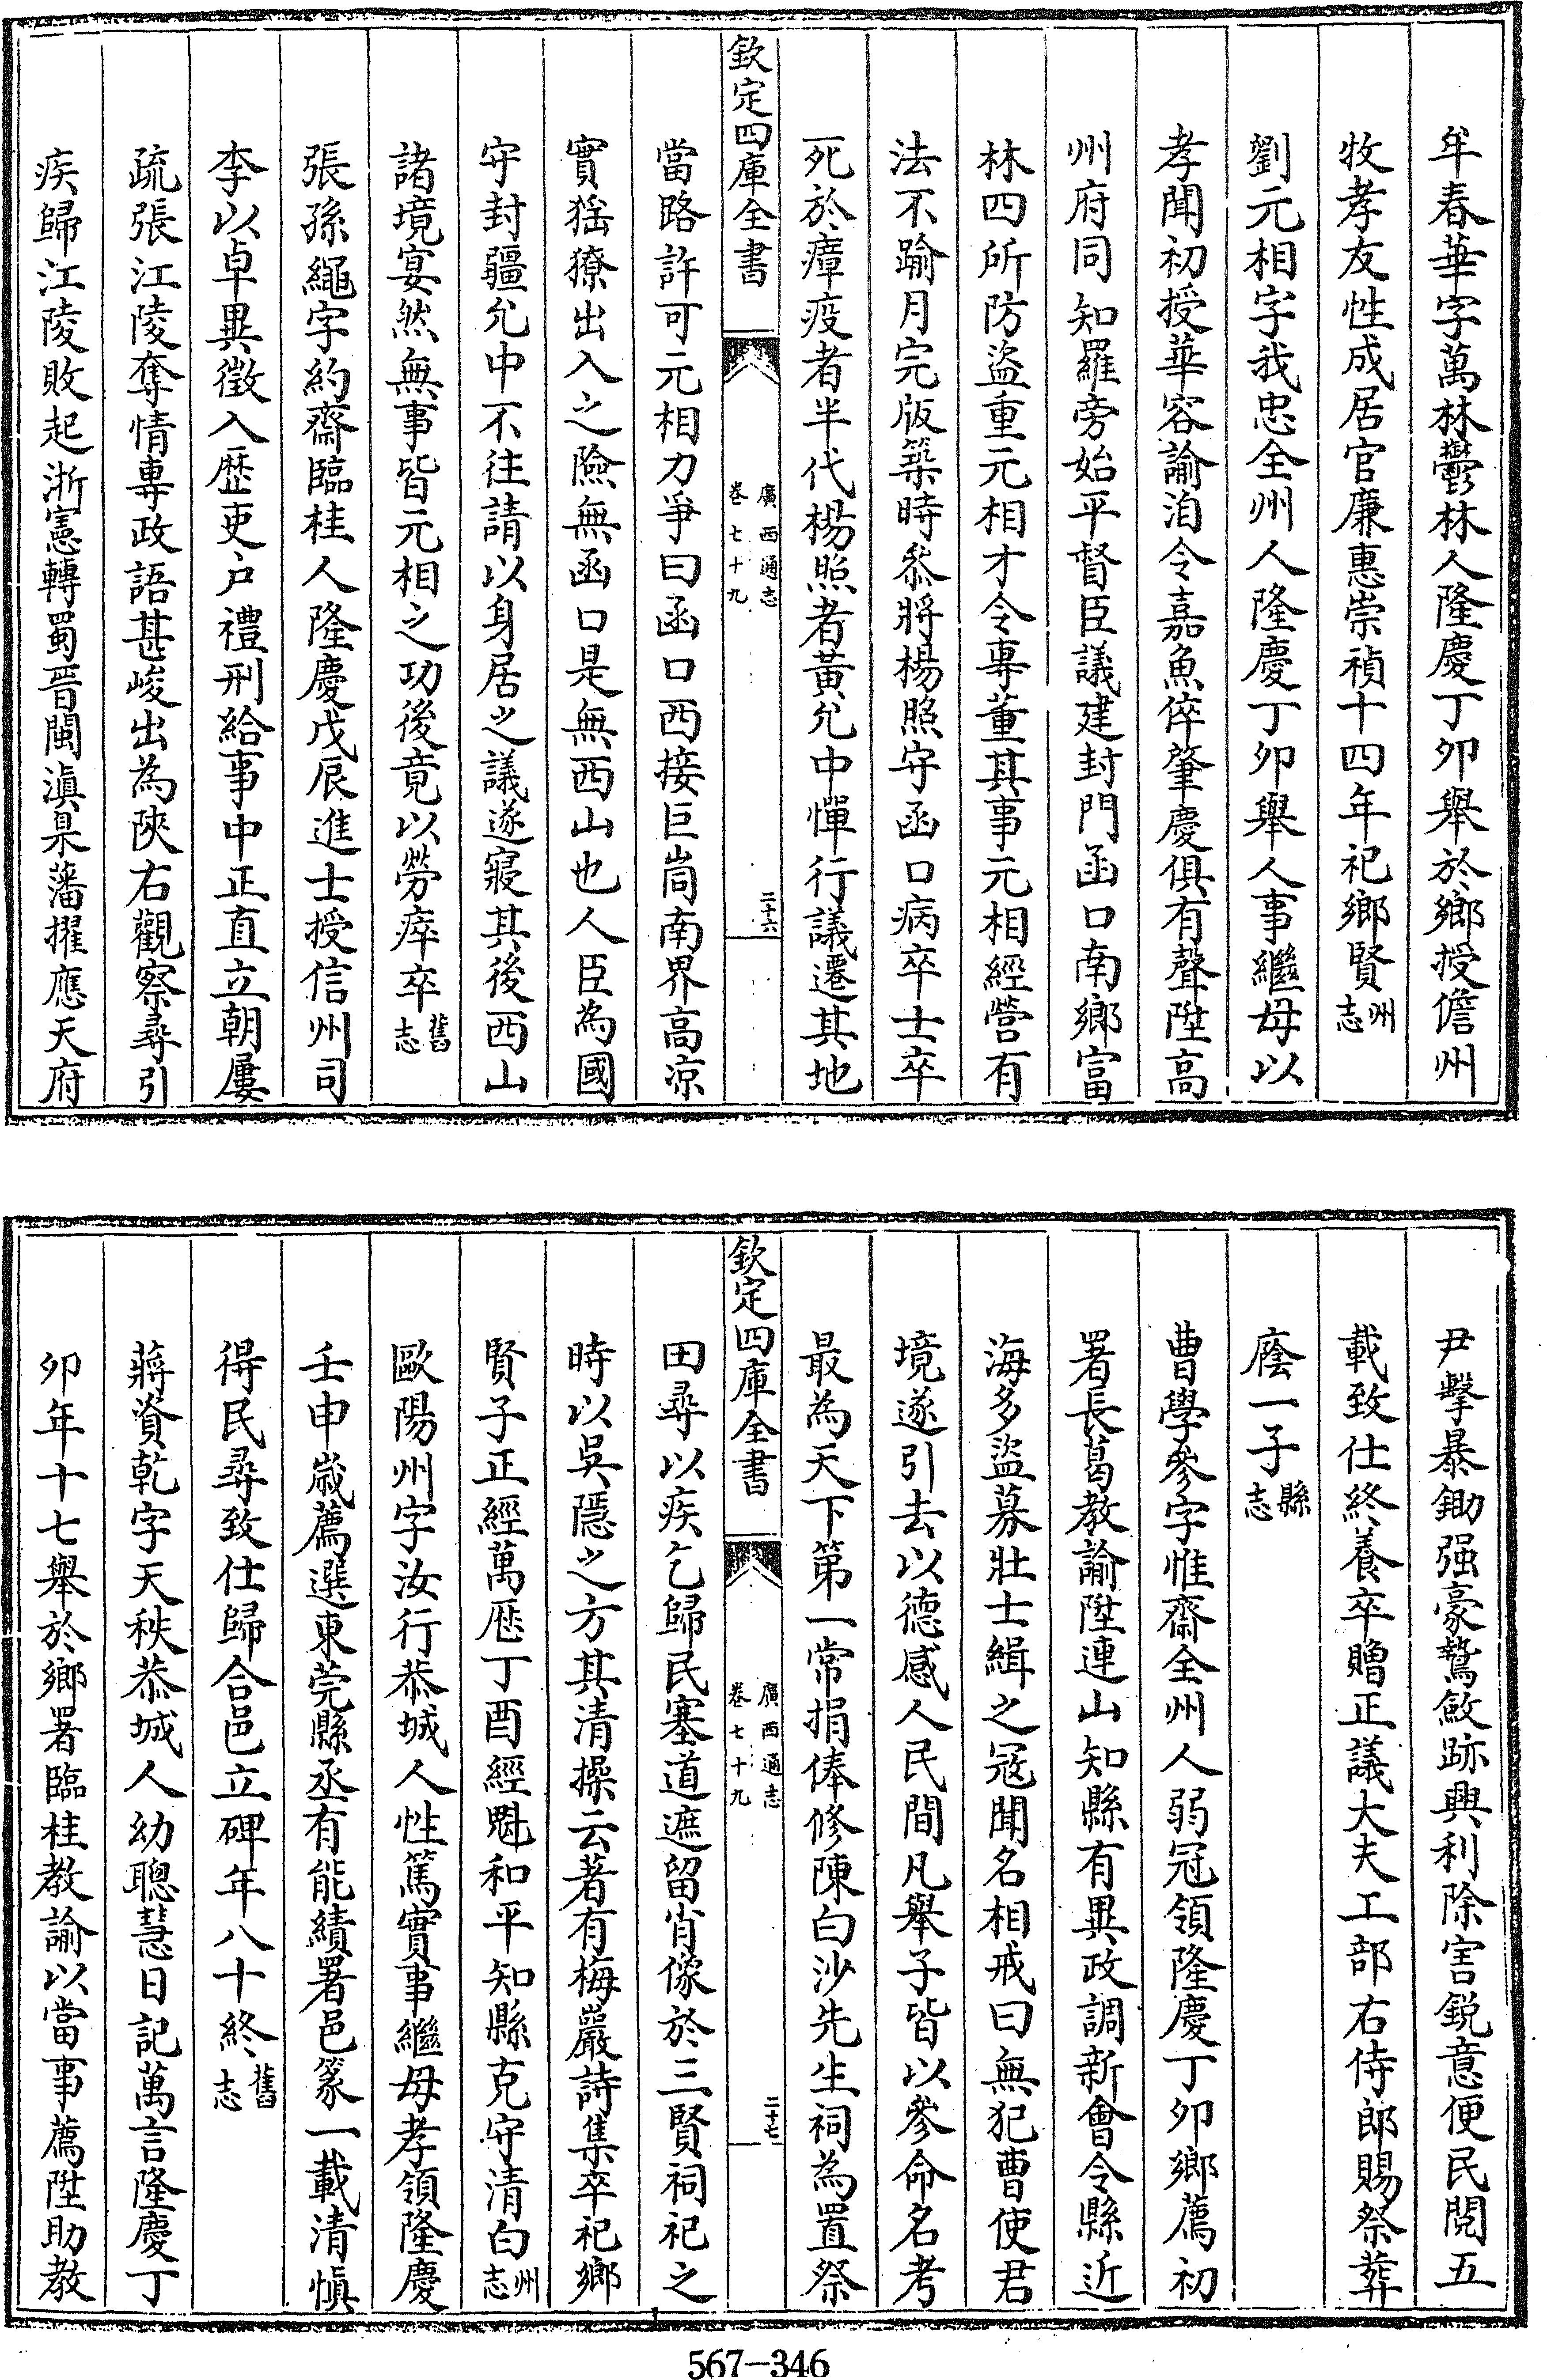 牟春華字萬林鬱林人隆慶丁卯舉於鄉授儋州
牧孝友性成居官廉惠崇禎十四年祀鄉賢州志
劉元相字我忠全州人隆慶丁卯舉人事繼母以
孝聞初授華容諭洎令嘉魚倅肇慶俱有聲陞高
州府同知羅旁始平督臣議建封門函口南鄉富
林四所防盜重元相才令專董其事元相經營有
法不踰月完版築時叅將楊照守函口病卒士卒
死於瘴疫者半代楊照者黃允中憚行議遷其地
欽定四庫全書
廣西通志
卷七十九
二十六
當路許可元相力爭曰函口西接巨峝南界高凉
實猺獠出入之險無函口是無西山也人臣為國
守封疆允中不往請以身居之議遂寢其後西山
諸境宴然無事皆元相之功後竟以勞瘁卒舊志
張孫繩字約齋臨桂人隆慶戊辰進士授信州司
李以卓異徵入歴吏户禮刑給事中正直立朝屢
疏張江陵奪情專政語甚峻出為陝右觀察尋引
疾歸江陵敗起浙憲轉蜀晋閩滇臬藩擢應天府
尹擊暴鋤强豪鷙斂跡興利除害鋭意便民閱五
載致仕終養卒贈正議大夫工部右侍郎賜祭葬
廕一子縣志
曹學參字惟齋全州人弱冠領隆慶丁卯鄉薦初
署長葛教諭陞連山知縣有異政調新會令縣近
海多盜募壯士緝之冦聞名相戒曰無犯曹使君
境遂引去以德感人民間凡舉子皆以參命名考
最為天下第一常捐俸修陳白沙先生祠為置祭
欽定四庫全書
廣西通志
卷七十九
二十七
田尋以疾乞歸民塞道遮留肖像於三賢祠祀之
時以吳隱之方其清操云著有梅巖詩集卒祀鄉
賢子正經萬厯丁酉經魁和平知縣克守清白州志
歐陽州字汝行恭城人性篤實事繼母孝領隆慶
壬申嵗薦選東莞縣丞有能績署邑篆一載清慎
得民尋致仕歸合邑立碑年八十終舊志
蔣資乾字天秩恭城人幼聰慧日記萬言隆慶丁
卯年十七舉於鄉署臨桂教諭以當事薦陞助教
567-346